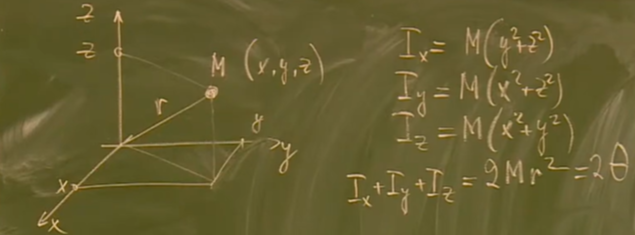 z
z
M (x,y,z)
r
y
y
x
x
I_x = M(y²+z²)
I_y = M(x²+z²)
I_z = M(x²+y²)
I_x+I_y+I_z = 2Mr² = 2θ